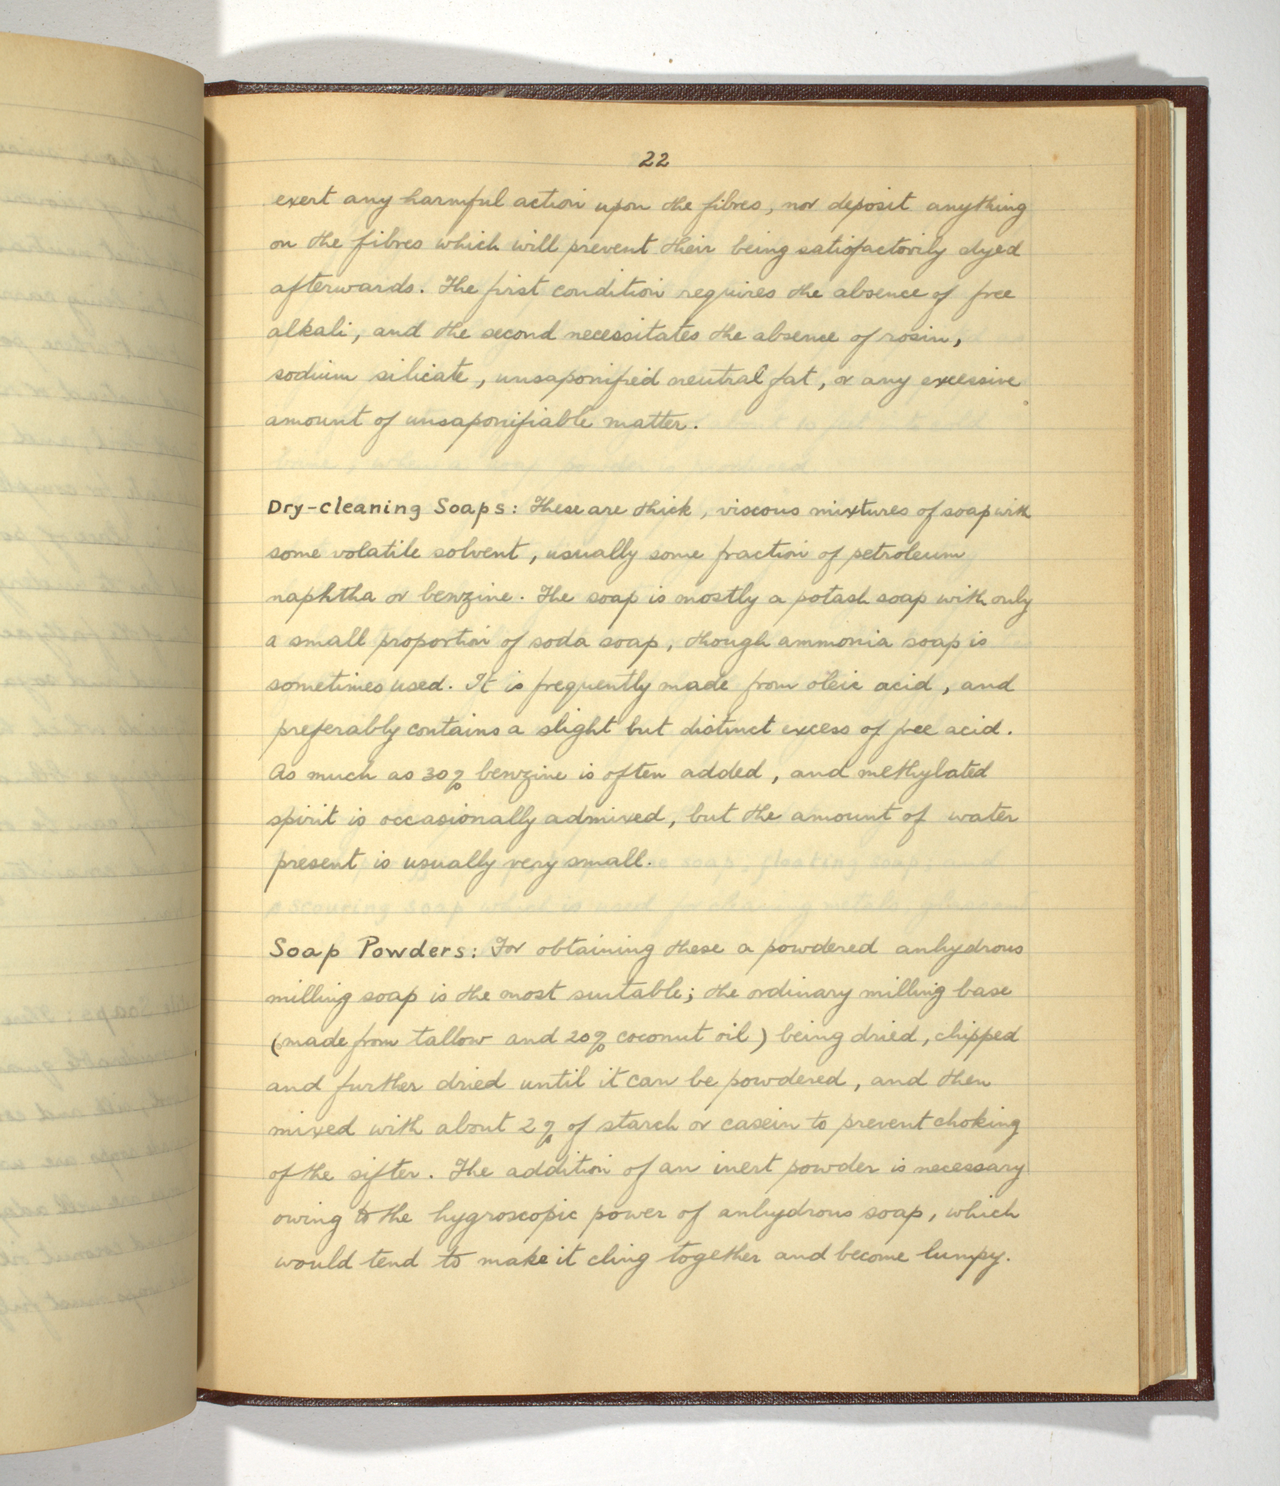 22
exert any harmful action upon the fibres, nor deposit anything
on the fibres which will prevent their being satisfactorily dyed
afterwards. The first condition requires the absence of free
alkali, and the second necessitates the absence of rosin,
sodium silicate, unsaponified neutral fat, or any excessive
amount of unsaponifiable matter.
Dry-cleaning Soaps: These are thick, viscous mixtures of soap with
some volatile solvent, usually some fraction of petroleum
naphtha or benzine. The soap is mostly a potash soap with only
a small proportion of soda soap, though ammonia soap is
sometimes used. It is frequently made from oleic acid, and
preferably contains a slight but distinct excess of free acid.
As much as 30% benzine is often added, and methylated
spirit is occasionally admixed, but the amount of water
present is usually very small.
Soap Powders: For obtaining these a powdered anhydrous
milling soap is the most suitable; the ordinary milling base
(made from tallow and 20% coconut oil) being dried, chipped
and further dried until it can be powdered, and then
mixed with about 2% of starch or casein to prevent choking
of the sifter. The addition of an inert powder is necessary
owing to the hygroscopic power of anhydrous soap, which
would tend to make it cling together and become lumpy.